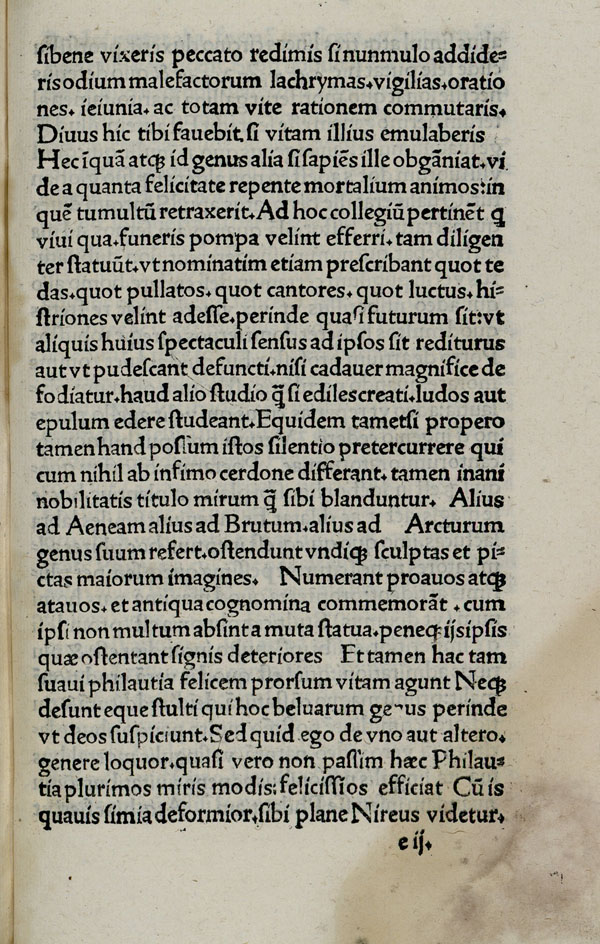 ſibene vixeris peccato redimis ſi nunmulo addide=
ris odium malefactorum lachrymas.vigilias.oratio
nes. ieiunia. ac totam vite rationem commutaris.
Diuus hic tibi fauebit.ſi vitam illius emulaberis
Hec īquā atqꝫ id genus alia ſi ſapiēs ille obgāniat.vi
de a quanta felicitate repente mortalium animos:in
quē tumultū retraxerit.Ad hoc collegiū pertinēt q̄
viui qua.funeris pompa velint efferri.tam diligen
ter ſtatuūt.vt nominatim etiam preſcribant quot te
das.quot pullatos.quot cantores.quot luctus.hi=
ſtriones velint adeſſe.perinde quaſi futurum ſit:vt
aliquis huius ſpectaculi ſenſus ad ipſos ſit rediturus
aut vt pudeſcant defuncti.niſi cadauer magnifice de
fodiatur.haud alio ſtudio q̄ ſi edilescreati.ludos aut
epulum edere ſtudeant.Equidem tametſi propero
tamen hand poſſum iſtos ſilentio pretercurrere qui
cum nihil ab infimo cerdone differant.tamen inani
nobilitatis titulo mirum q̄ ſibi blanduntur. Alius
ad Aeneam alius ad Brutum.alius ad Arcturum
genus ſuum refert.oſtendunt vndiqꝫ ſculptas et pi=
ctas maiorum imagines. Numerant proauos atqꝫ
atauos.et antiqua cognomina commemorāt .cum
ipſi non multum abſint a muta ſtatua.peneqꝫ ijsipſis
quæ oſtentant ſignis deteriores Et tamen hac tam
ſuaui philautia felicem prorſum vitam agunt Neqꝫ
deſunt eque ſtulti qui hoc beluarum genus perinde
vt deos ſuſpiciunt.Sed quid ego de vno aut altero.
genere loquor.quaſi vero non paſſim hæc Philau=
tia plurimos miris modis:feliciſſios efficiat Cū is
quauis ſimia deformior.ſibi plane Nireus videtur.
e ij.